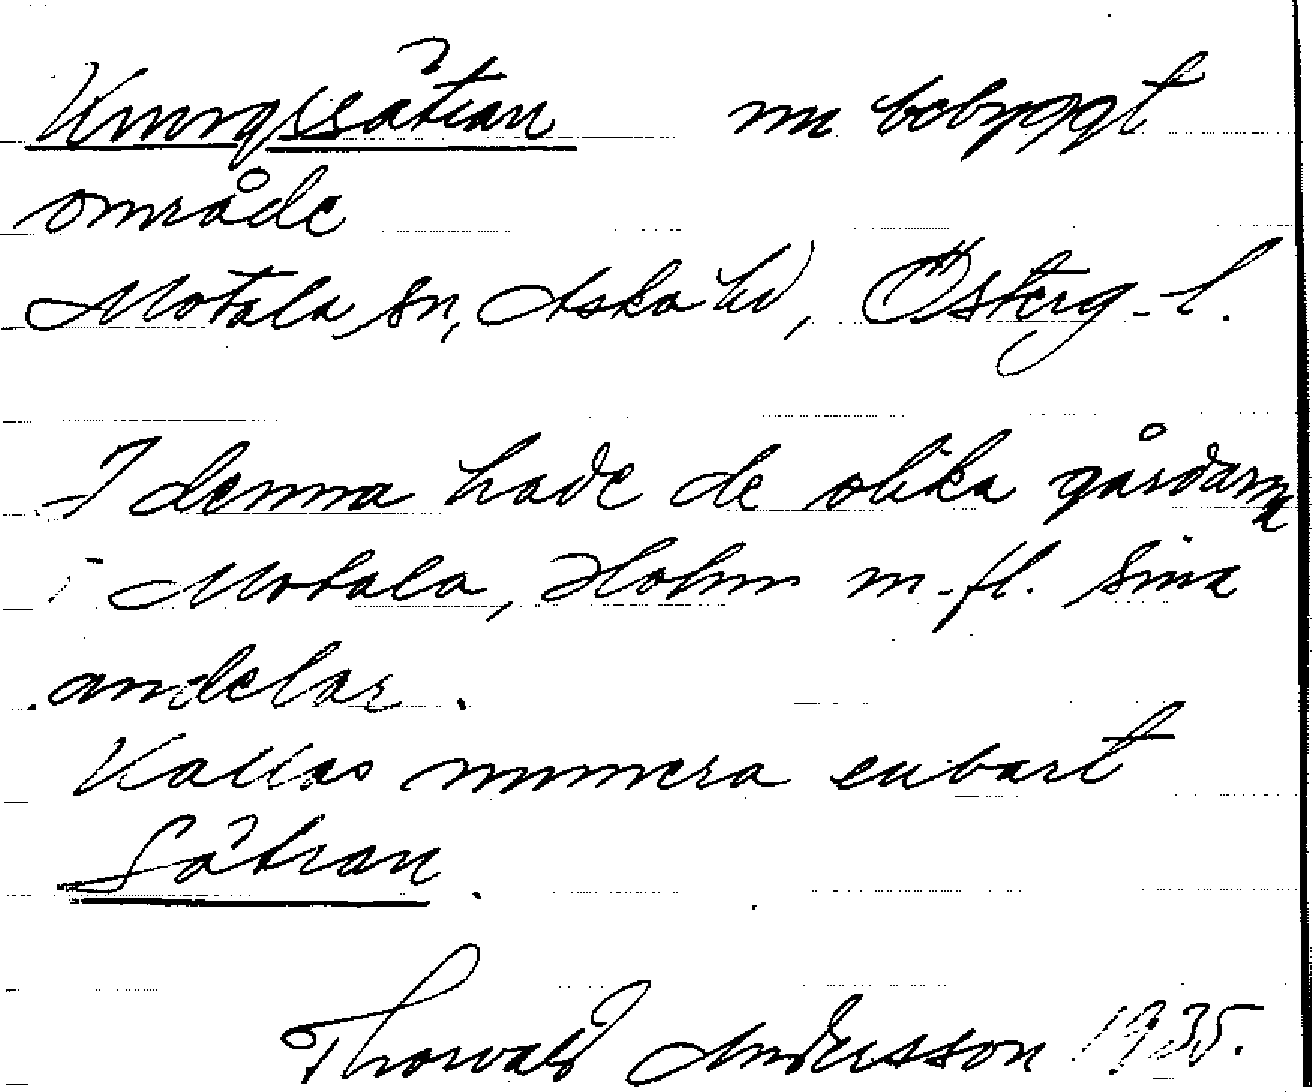 Kungssätran nu bebyggt
område
Motala sn, Aska hd, Österg-l.
I denna hade de olika gårdarna
i Motala, Holm m.fl. sina
andelar.
Kallas numera enbart
Sätran.
Thorvald Andersson 1935.